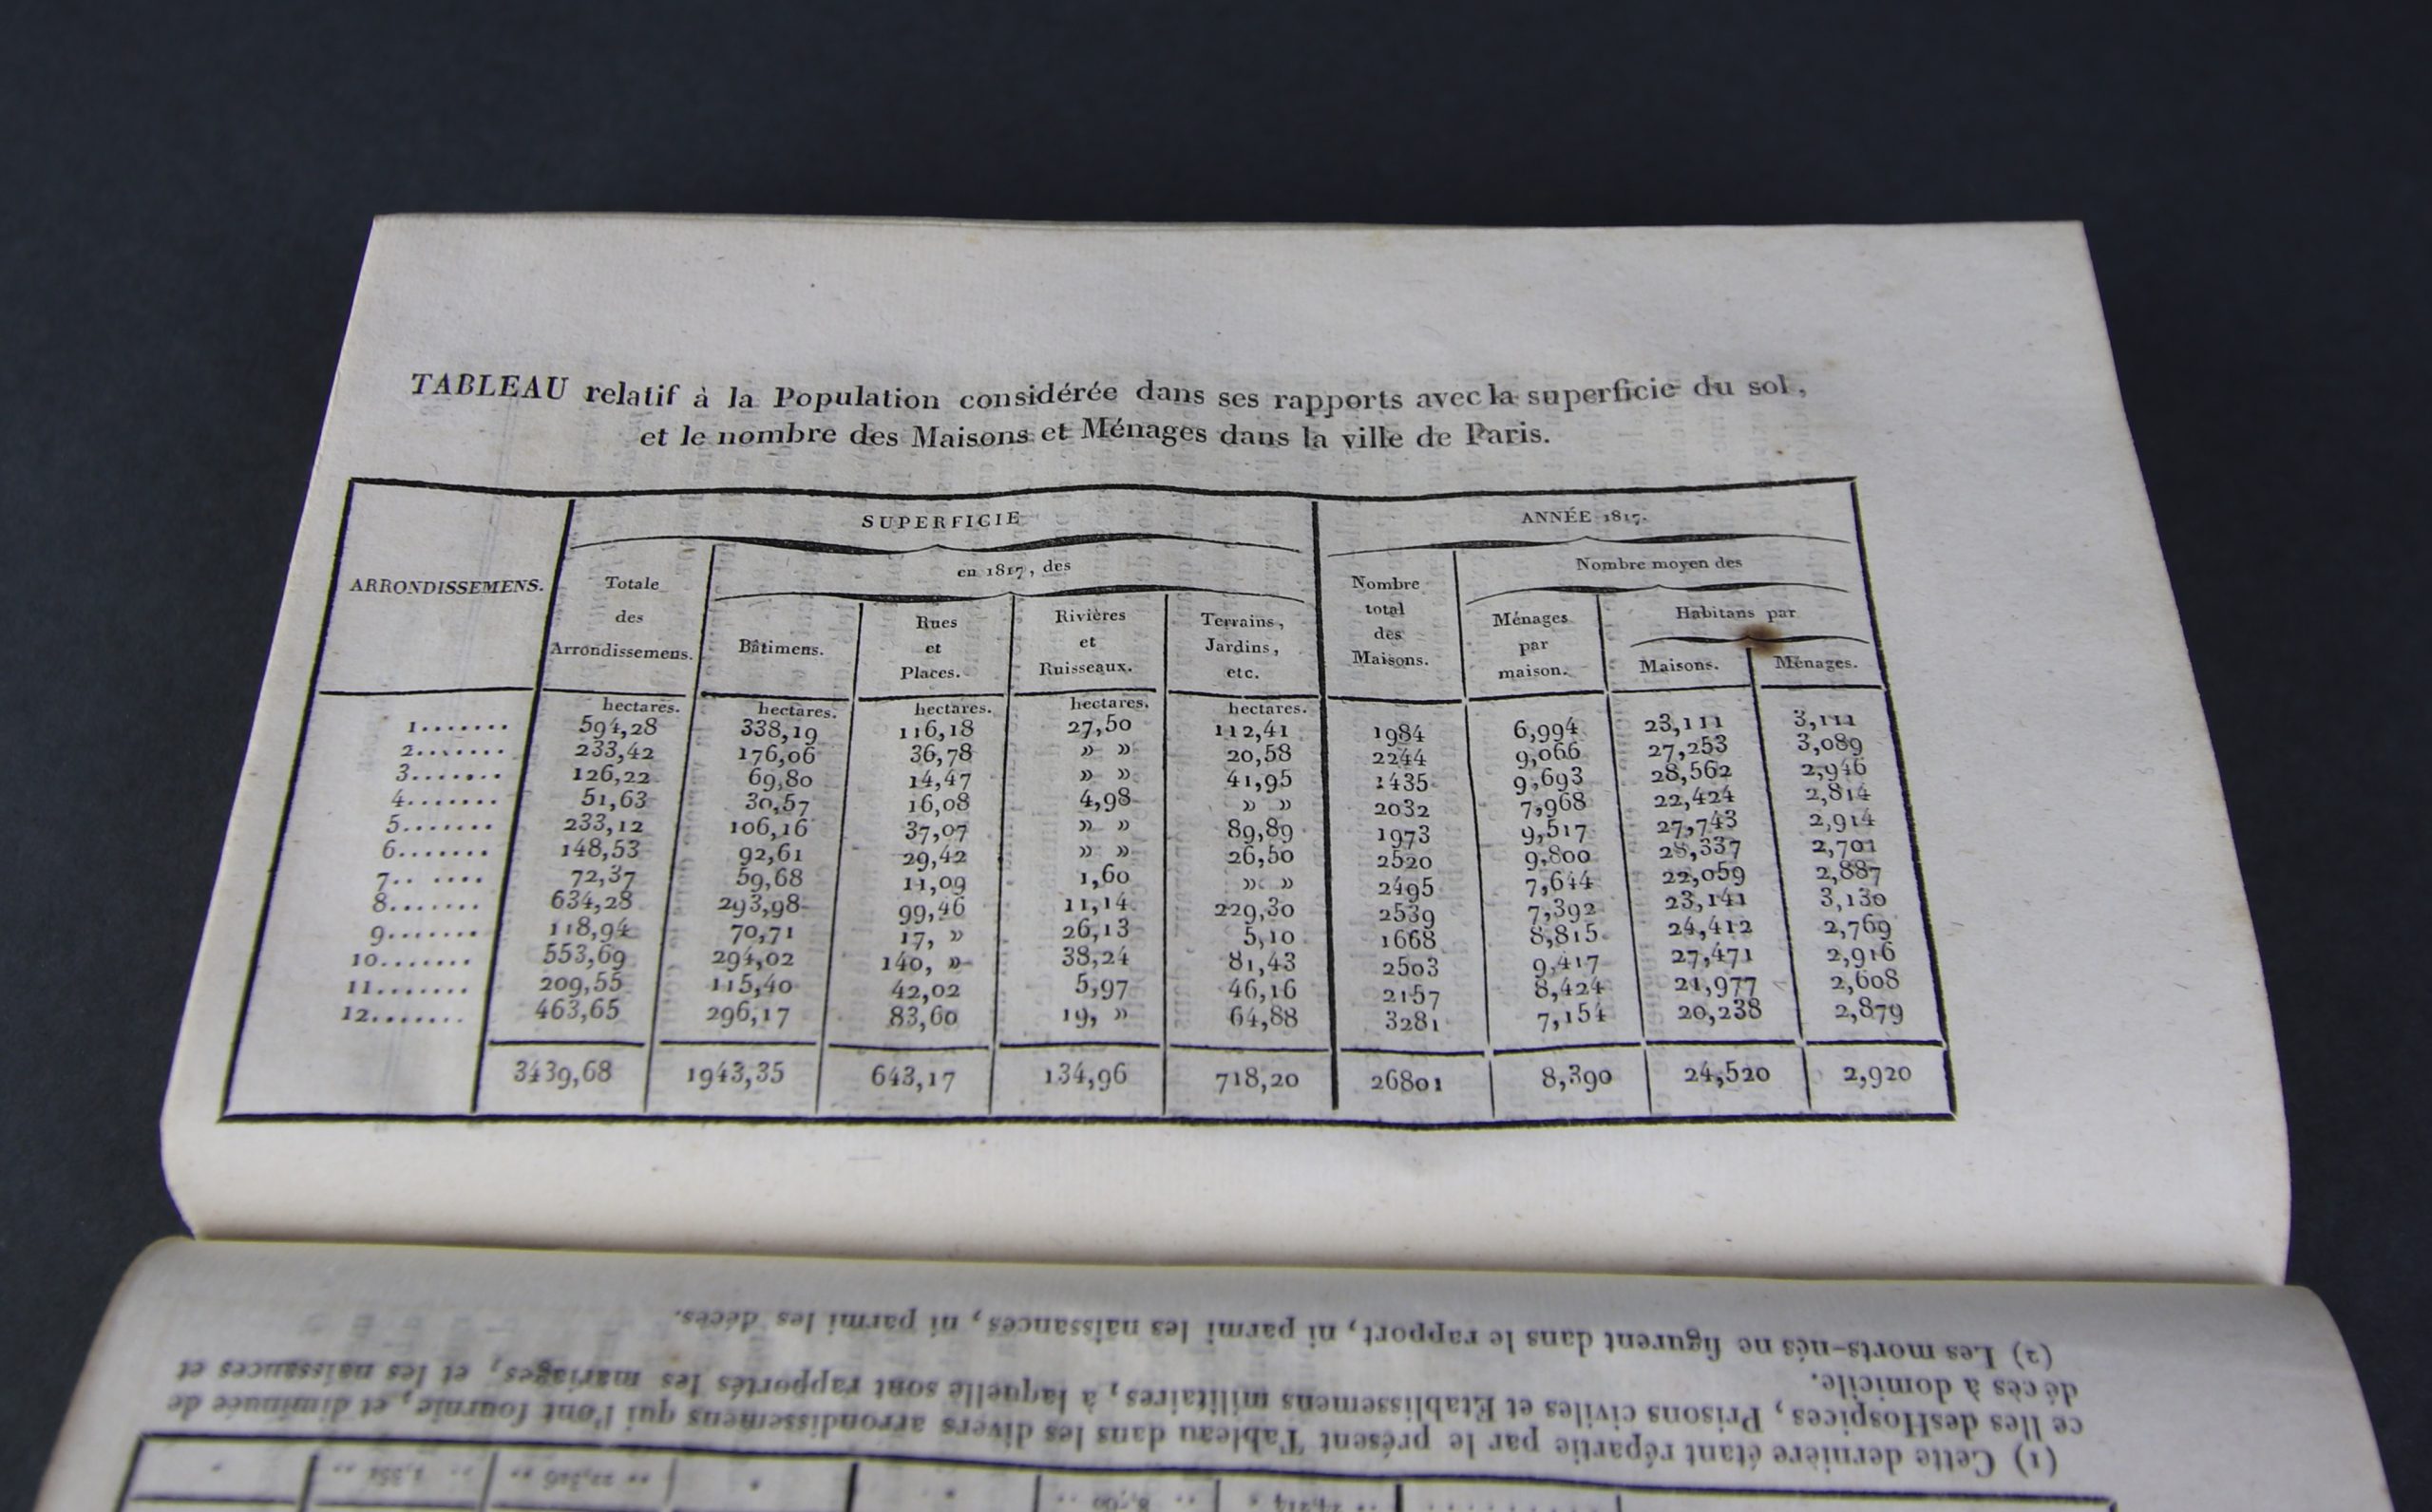 TABLEAU relatif à la Population considérée dans ses rapports avec la superficie du sol,
et le nombre des Maisons et Ménages dans la ville de Paris.
ARRONDISSEMENS.
SUPERFICIE
ANNÉE 1817.
Totale des Arrondissemens.
en 1817, des
Bâtimens.
Rues et Places.
Rivières et Ruisseaux.
Terrains, Jardins, etc.
Nombre total des Maisons.
Nombre moyen des
Ménages par maison.
Habitans par
Maisons.
Ménages.
hectares. hectares. hectares. hectares. hectares.
1....... 594,28 338,19 116,18 27,50 112,41 1984 6,994 23,111 3,111
2....... 233,42 176,06 36,78 » » 20,58 2244 9,066 27,253 3,089
3....... 126,22 69,80 14,47 » » 41,95 1435 9,693 28,562 2,946
4....... 51,63 30,57 16,08 4,98 » » 2032 7,968 22,424 2,814
5....... 233,12 106,16 37,07 » » 89,89 1973 9,517 27,743 2,914
6....... 148,53 92,61 29,42 » » 26,50 2520 9,800 28,337 2,701
7.. .... 72,37 59,68 11,09 1,60 » » 2495 7,644 22,059 2,887
8....... 634,28 293,98 99,46 11,14 229,30 2539 7,392 23,141 3,130
9....... 118,94 70,71 17, » 26,13 5,10 1668 8,815 24,412 2,769
10....... 553,69 294,02 140, » 38,24 81,43 2503 9,417 27,471 2,916
11....... 209,55 115,40 42,02 5,97 46,16 2157 8,424 21,977 2,608
12....... 463,65 296,17 83,60 19, » 64,88 3281 7,154 20,238 2,879
3439,68 1943,35 643,17 134,96 718,20 26801 8,390 24,520 2,920
(1) Cette dernière étant répartie par le présent Tableau dans les divers arrondissemens qui l'ont fournie, et diminuée de
ce lles des Hospices, Prisons civiles et Etablissemens militaires, à laquelle sont rapportés les mariages, et les naissances et
décès à domicile.
(2) Les morts-nés ne figurent dans le rapport, ni parmi les naissances, ni parmi les décès.